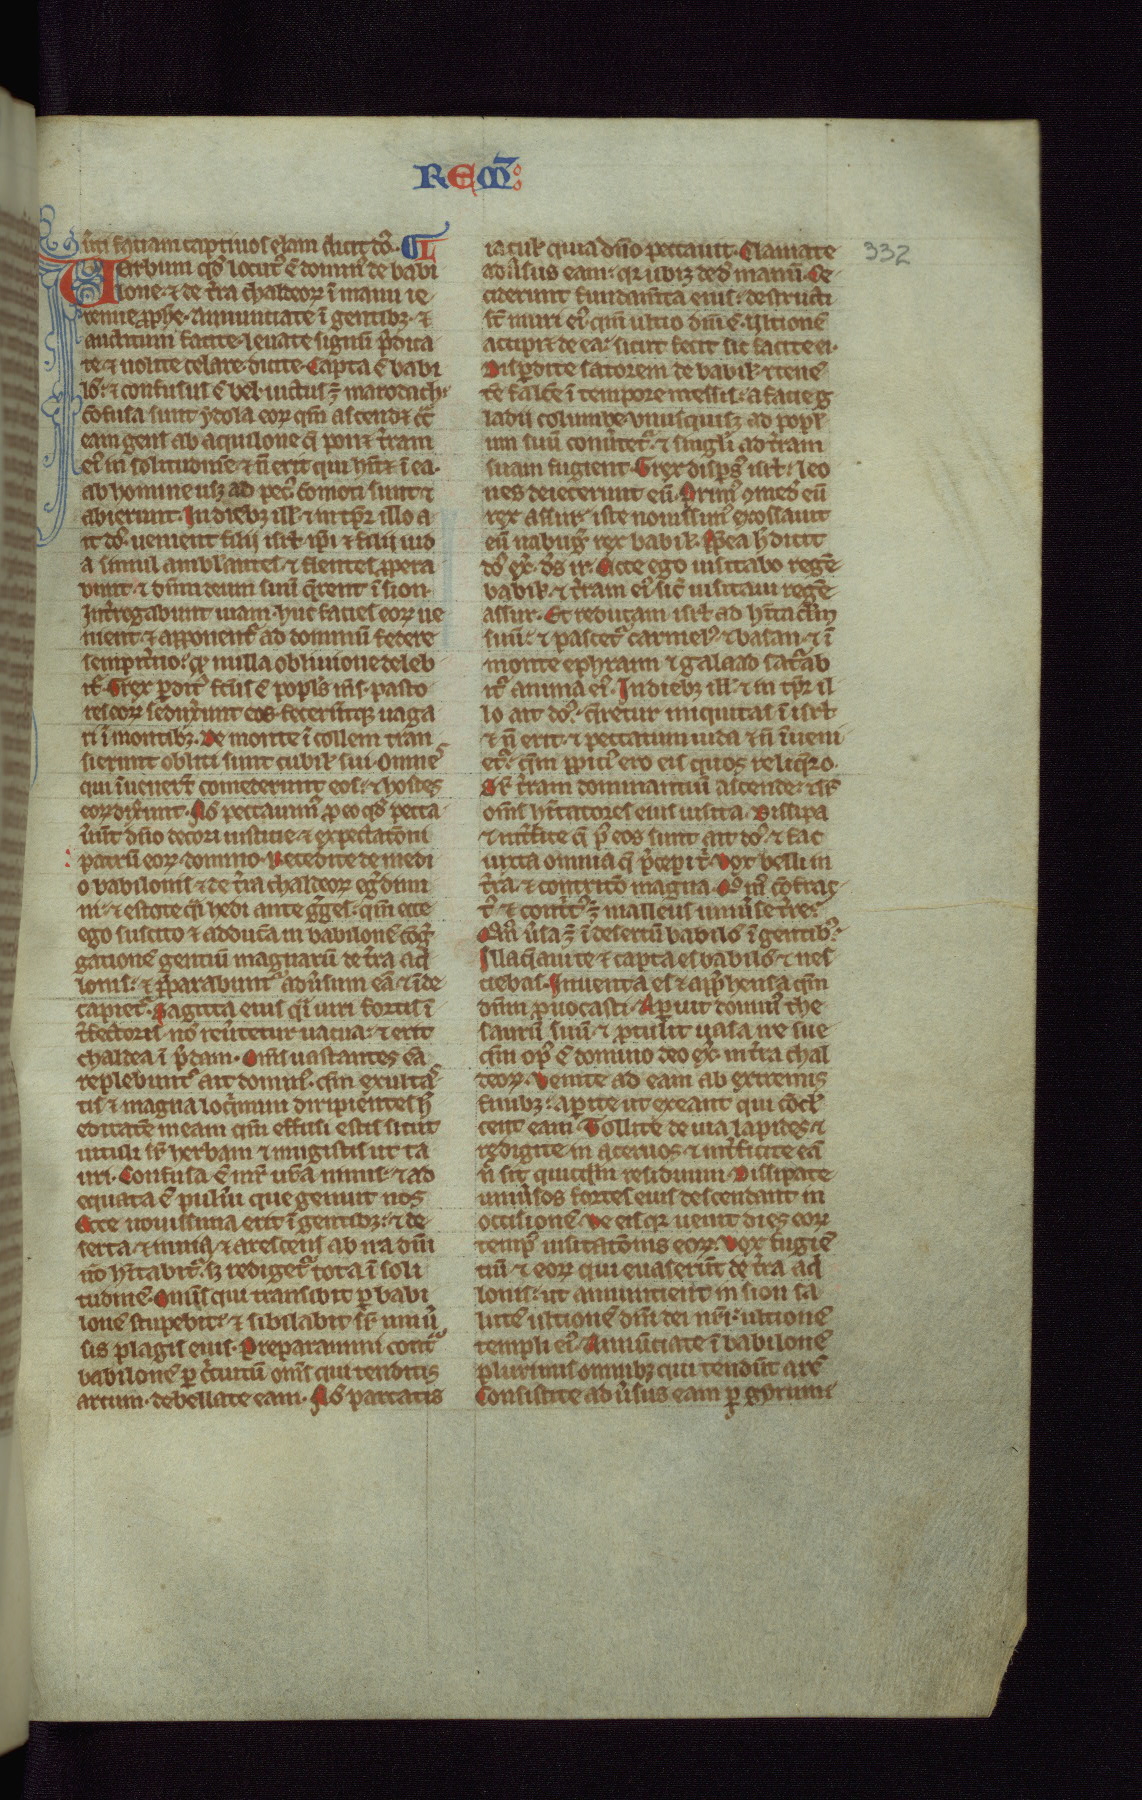 REM̄:
332
ir̄i faciam captiuos elam dicit dn̄s. L
Uerbum qd̓ locut᷒ ē domin᷒ de babi
lone. ⁊ de t̄ra chaldeoꝝ ī manu ie
remie ꝓph̄e. Annunciate ī gentibꝫ. ⁊
auditum facite. leuate signū p̄dica
te. ⁊ nolite celare. dicite. Capta ē babi
lō: ⁊ confusus ē bel. uictus ꝫ marodach.
Cōfusa sunt ydola eoꝝ qm̄ ascendit cōt̄
eam gens ab aquilone q̄ ponit t̄ram
ei᷒ in solitudinē ⁊ n̄ erit qui h̄it& ī ea.
ab homine usqꝫ ad pec᷒ ⁊ comoti sunt ⁊
abierunt. In diebꝫ ill̓ ⁊ in tp̄r illo a
it dn̄s. uenient filii isrl̓ ip̄i ⁊ filii iud
a simul ambl̓antes ⁊ flentes ꝓpera
bunt. ⁊ dn̄m deum suū q̄rent ī sion
Int̄rogabunt uiam. huc facies eoꝝ ue
nient. ⁊ apponent᷒ ad dominū federe
sempit̄no: qđ nulla obliuione deleb
it᷒. Grex ꝑdit᷒ fc̄us ē popl̓s m̄s. pasto
res eoꝝ sedux̄unt eos. fecer̄tqꝫ uaga
ri ī montibꝫ. De monte ī collem tran
sierunt obliti sunt cubil̓ sui. Omnes
qui īuener̄t comederunt eos: ⁊ hostes
eoꝝ dix̄unt. Nō peccauim᷒ ꝓ eo qd̓ pecca
uer̄t dn̄o decori iusticie ⁊ expectatōni
patrū eoꝝ domino. Recedite de medi
o babilonis ⁊ de t̄ra chaldeoꝝ eg̓dimi
ni: ⁊ estote q̄si hedi ante gg̓es. qm̄ ecce
ego suscito ⁊ adducā in babilonē cōg̓
gationē gentiū magnarū de t̄ra aq̓
lonis: ⁊ p̄parabunt᷒ adūsum eā ⁊ īde
capiet᷒. Sagitta eius q̄si uiri fortis ī
t̄fectoris. nō reūtetur uacua: ⁊ erit
chaldea ī p̄dam. Om̄s uastantes eā
replebunt᷒ ait domin᷒. qm̄ exulta
tis ⁊ magna loq̓mini diripientes h̓
editatē meam qm̄ effusi estis sicut
uituli sr̄ herbam ⁊ mugistis ut ta
uri. Confusa ē mr̄ uēa nimis. ⁊ ad
equata ē pulūi que genuit uos
Ecce nouissima erit ī gentibꝫ: ⁊ de
serta ⁊ inuia ⁊ arescens ab ira dn̄i
nō h̄itabit᷒. sꝫ redigetur tota ī soli
tudinē. Omīs qui transibit ꝑ babi
lonē stupebit: ⁊ sibilabit sr̄ uniū
sis plagis eius. Preparamini cont᷒
babilonē ꝑ c̓cuitū om̄s qui tenditis
arcum. debellate eam. Nō parcatis
iacul̓ quia dn̄o peccauit. Clamate
adūsus eam: qr̄ ubiqꝫ ded̓ manū. Ce
ciderunt fundam̄ta eius: destructi
s̄t muri ei᷒. qm̄ ultio dn̄i ē. Ultionē
accipite de ea: sicut fecit sic facite ei.
Disperdite satorem de babil̓ ⁊ tenē
tē falcē ī tempore messis: a facie g
ladii columbe. unusquisqꝫ ad popl̓
um suū conuertet᷒. ⁊ singl̓i ad t̄ram
suam fugient. Grex disp̄s᷒ isrl̓: leo
nes deiecerunt eū. Prim᷒ ꝯmed᷒ eū
rex assur. iste nouissim᷒ exossauit
eū nabug̓ rex babil̓. Ꝓpea h̓ dicit
dn̄s ex̄c. ds̄ ir̓. Ecce ego uisitabo regē
babil̓ ⁊ t̄ram ei᷒. sic̄ uisitaui regē
assur. Et reducam isrl̓ ad h̄itac̄lm
suū: ⁊ pascet᷒ carmel᷒ ⁊ basan. ⁊ ī
monte ephraim ⁊ galaad sat̄ab
it᷒ anima ei᷒. In diebꝫ ill̓. ⁊ in tp̄r il
lo ait dn̄s. q̄retur iniquitas ī isrl̓
⁊ n̄ erit. ⁊ peccatum iuda ⁊ n̄ īueni
et᷒. qm̄ ꝓpici᷒ ero eis quos reliq̓ro.
Sr̄ t̄ram dominantiū ascende: ⁊ sr̄
om̄s h̄itatores eius uisita. Dissipa
⁊ int̄fice q̄ p᷒ eos sunt ait dn̄s. ⁊ fac
iuxta omnia q̄ p̄cepi t̄. Uox belli in
t̄ra. ⁊ contritō magna. Qm̄o cōfrac
t᷒ ⁊ contrit᷒ ꝫ malleus uniūse t̄re:
Qm̄o ūsa ꝫ ī desertū babilō ī gentibꝫ.
Illaq̄aui te ⁊ capta es babilō ⁊ nes
ciebas. Inuenta es ⁊ app̄hensa qm̄
dn̄m ꝓuocasti. Aperuit domin᷒ the
saurū suū. ⁊ ꝓtulit uasa ire sue
qm̄ op᷒ ē domino deo ex̄. in t̄ra chal
deoꝝ. Uenite ad eam ab extremis
finibꝫ: aperite ut exeant qui cōcl̓
cent eam. Tollite de uia lapides. ⁊
redigite in aceruos. ⁊ int̄ficite eā
n̄ sit quicq̄m residuum. Dissipate
uniūsos fortes eius descendant in
occisionē. Ue eis qr̄ uenit dies eoꝝ
temp᷒ uisitatōnis eoꝝ. Uox fugiē
tiū ⁊ eoꝝ qui euaserūt de t̄ra aq̓
lonis: ut annuntient in sion sa
lutē ultionē dn̄i dei nr̄i: ultionē
templi ei᷒. Annūciate ī babilonē
plurimis omnibꝫ qui tendūt arcū
Consistite adūsus eam ꝑ gyrum: